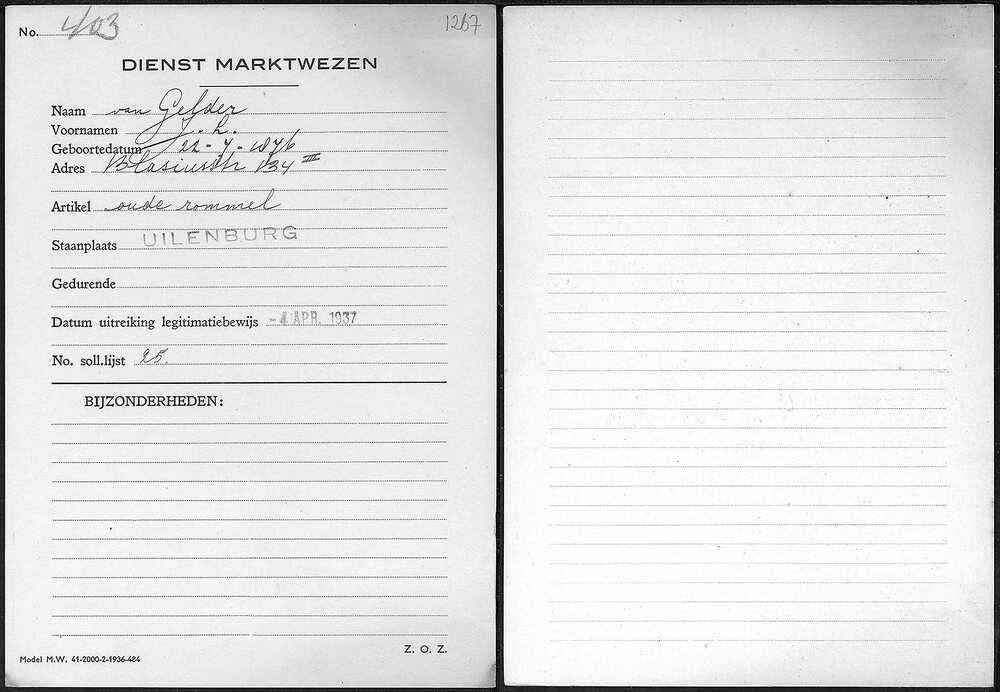 No. 403
1267
DIENST MARKTWEZEN
Naam van Gelder
Voornamen J. L.
Geboortedatum 22-7-1876
Adres Blasiusstr 134 III
Artikel oude rommel
Staanplaats UILENBURG
Gedurende
Datum uitreiking legitimatiebewijs -4 APR. 1937
No. soll.lijst 25.
BIJZONDERHEDEN:
Z. O. Z.
Model M.W. 41-2000-2-1936-484